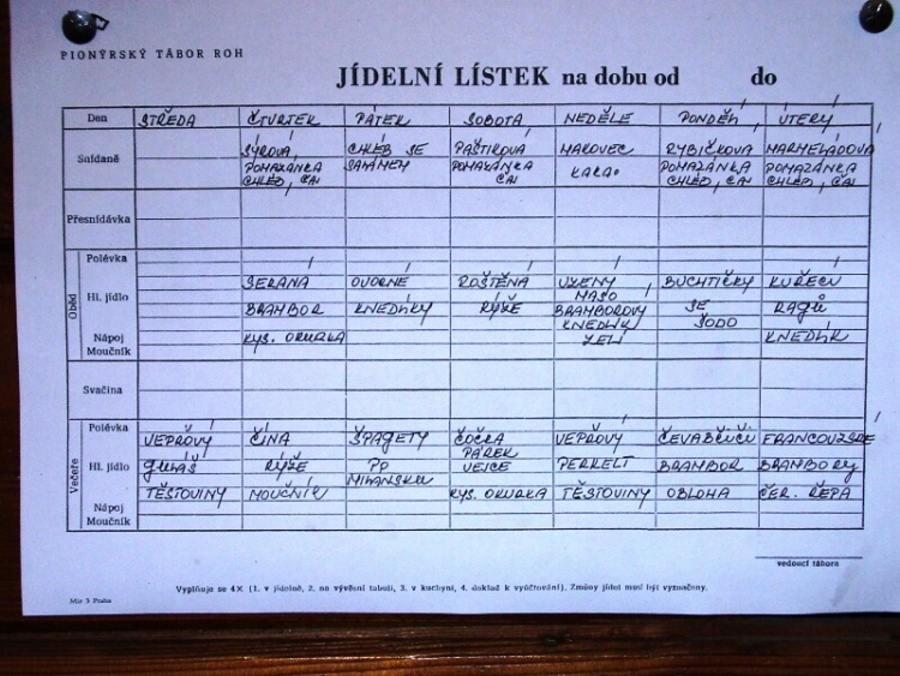 PIONÝRSKÝ TÁBOR ROH
JÍDELNÍ LÍSTEK na dobu od do
Den STŘEDA ČTVRTEK PÁTEK SOBOTA NEDĚLE PONDĚLÍ ÚTERÝ
Snídaně SÝROVÁ CHLÉB SE PAŠTIKOVÁ MAKOVEC RYBIČKOVÁ MARMELÁDOVÁ
POMAZÁNKA SALÁMEM POMAZÁNKA KAKAO POMAZÁNKA POMAZÁNKA
CHLÉB, ČAJ ČAJ CHLÉB, ČAJ CHLÉB, ČAJ
Přesnídávka
Oběd
Polévka
SEKANÁ OVOCNÉ ROŠTĚNÁ UZENÝ BUCHTIČKY KUŘECÍ
Hl. jídlo MASO
BRAMBOR KNEDLÍKY RÝŽE BRAMBOROVÝ SE RAGŮ
KNEDLÍK ŠODO
Nápoj KYS. OKURKA ZELÍ KNEDLÍK
Moučník
Svačina
Večeře
Polévka
VEPŘOVÝ ČÍNA ŠPAGETY ČOČKA VEPŘOVÝ ČEVABČIČI FRANCOUZSKÉ
PÁREK
Hl. jídlo GULÁŠ RÝŽE PO VEJCE PERKELT BRAMBOR BRAMBORY
MILÁNSKU
TĚSTOVINY MOUČNÍK KYS. OKURKA TĚSTOVINY OBLOHA ČER. ŘEPA
Nápoj
Moučník
vedoucí tábora
Vyplňuje se 4X (1. v jídelně, 2. na vývěsní tabuli, 3. v kuchyni, 4. doklad k vyúčtování). Změny jídel musí být vyznačeny.
Mír 3 Praha